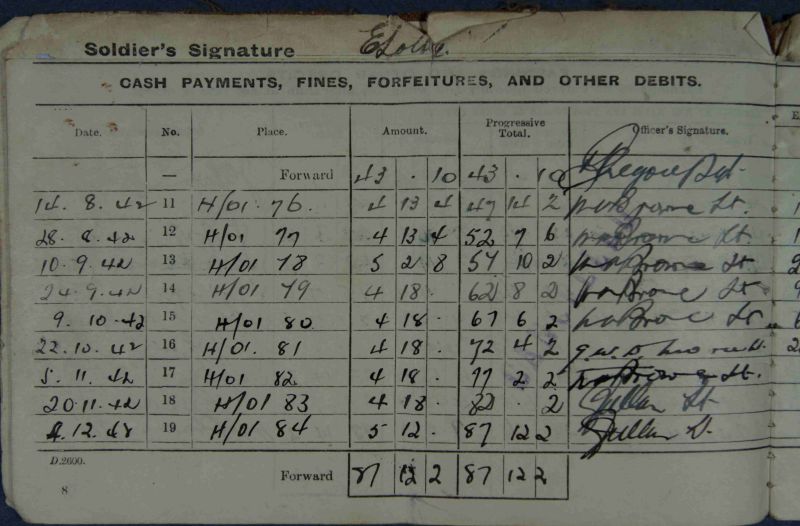 Soldier's Signature
CASH PAYMENTS, FINES, FORFEITURES, AND OTHER DEBITS.
Date. No. Place. Amount. Progressive Total. Officer's Signature.
— Forward 43 . 10 43 . 10
14. 8. 42 11 H/01 76. 4 13 4 47 14 2 Lt.
28. 8. 42 12 H/01 77 4 13 4 52 7 6 Lt.
10. 9. 42 13 H/01 78 5 2 8 57 10 2 Lt.
24. 9. 42 14 H/01 79 4 18 . 62 8 2 Lt.
9. 10. 42 15 H/01 80 4 18 . 67 6 2 Lt.
22. 10. 42 16 H/01. 81 4 18 . 72 4 2
5. 11. 42 17 H/01 82 4 18 . 77 2 2 Lt.
20. 11. 42 18 H/01 83 4 18 . 82 . 2 Lt
12. 19 H/01 84 5 12 . 87 12 2
D.2600. Forward 87 12 2 87 12 2
8